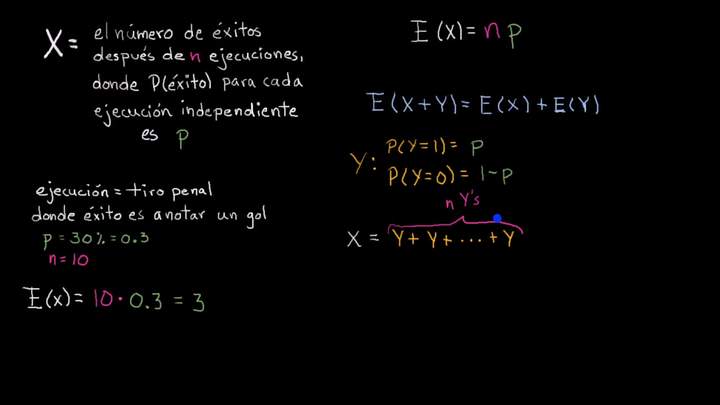 X = el número de éxitos
después de n ejecuciones,
donde P(éxito) para cada
ejecución independiente
es p
ejecución = tiro penal
donde éxito es anotar un gol
p = 30% = 0.3
n = 10
E(x) = 10 · 0.3 = 3
E(x) = n p
E(X+Y) = E(X) + E(Y)
Y: P(Y=1) = p
P(Y=0) = 1-p
n Y's
X = Y + Y + ... + Y